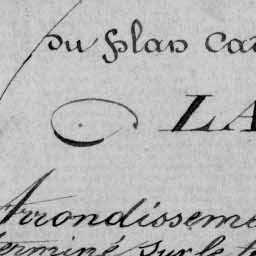 Du plan Ca
LA
Arrondisseme
terminé sur le t